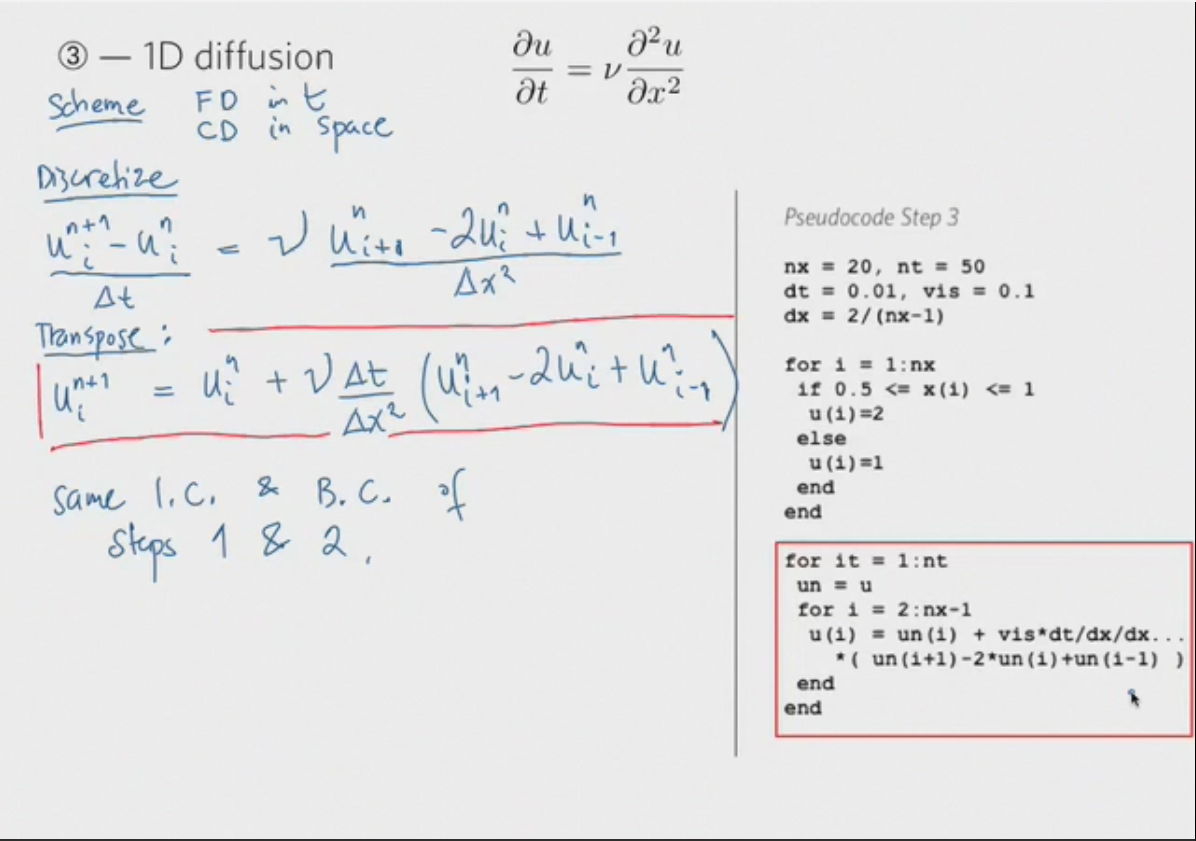 ③ — 1D diffusion
∂u/∂t = ν ∂²u/∂x²
Scheme FD in t
CD in space
Discretize
(uᵢⁿ⁺¹ - uᵢⁿ)/Δt = ν (uᵢ₊₁ⁿ - 2uᵢⁿ + uᵢ₋₁ⁿ)/Δx²
Transpose:
uᵢⁿ⁺¹ = uᵢⁿ + ν Δt/Δx² (uᵢ₊₁ⁿ - 2uᵢⁿ + uᵢ₋₁ⁿ)
same I.C. & B.C. of
steps 1 & 2.
Pseudocode Step 3
nx = 20, nt = 50
dt = 0.01, vis = 0.1
dx = 2/(nx-1)
for i = 1:nx
if 0.5 <= x(i) <= 1
u(i)=2
else
u(i)=1
end
end
for it = 1:nt
un = u
for i = 2:nx-1
u(i) = un(i) + vis*dt/dx/dx...
*( un(i+1)-2*un(i)+un(i-1) )
end
end